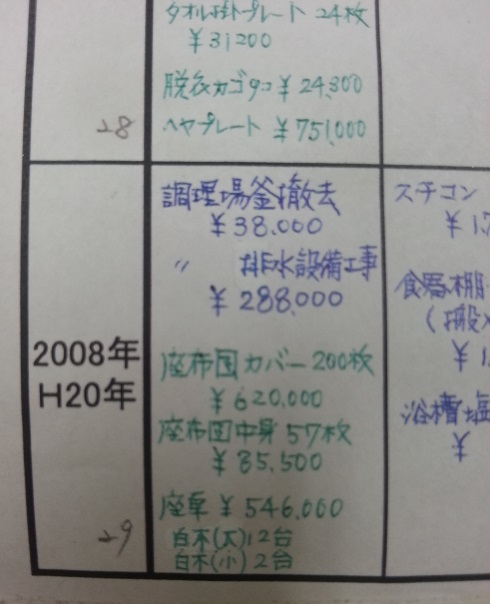 タオル掛トプレート 24枚
¥31200
脱衣カゴ9コ ¥24,300
28
ヘヤプレート ¥751,000
調理場釜撤去
¥38.000
〃 排水設備工事
¥288,000
2008年
H20年
座布団カバー200枚
¥620,000
座布団中身57枚
¥85,500
座卓 ¥546,000
白木(大)12台
白木(小)2台
29
スチコン
¥1
食器棚
(搬入
¥1
浴槽塩
¥